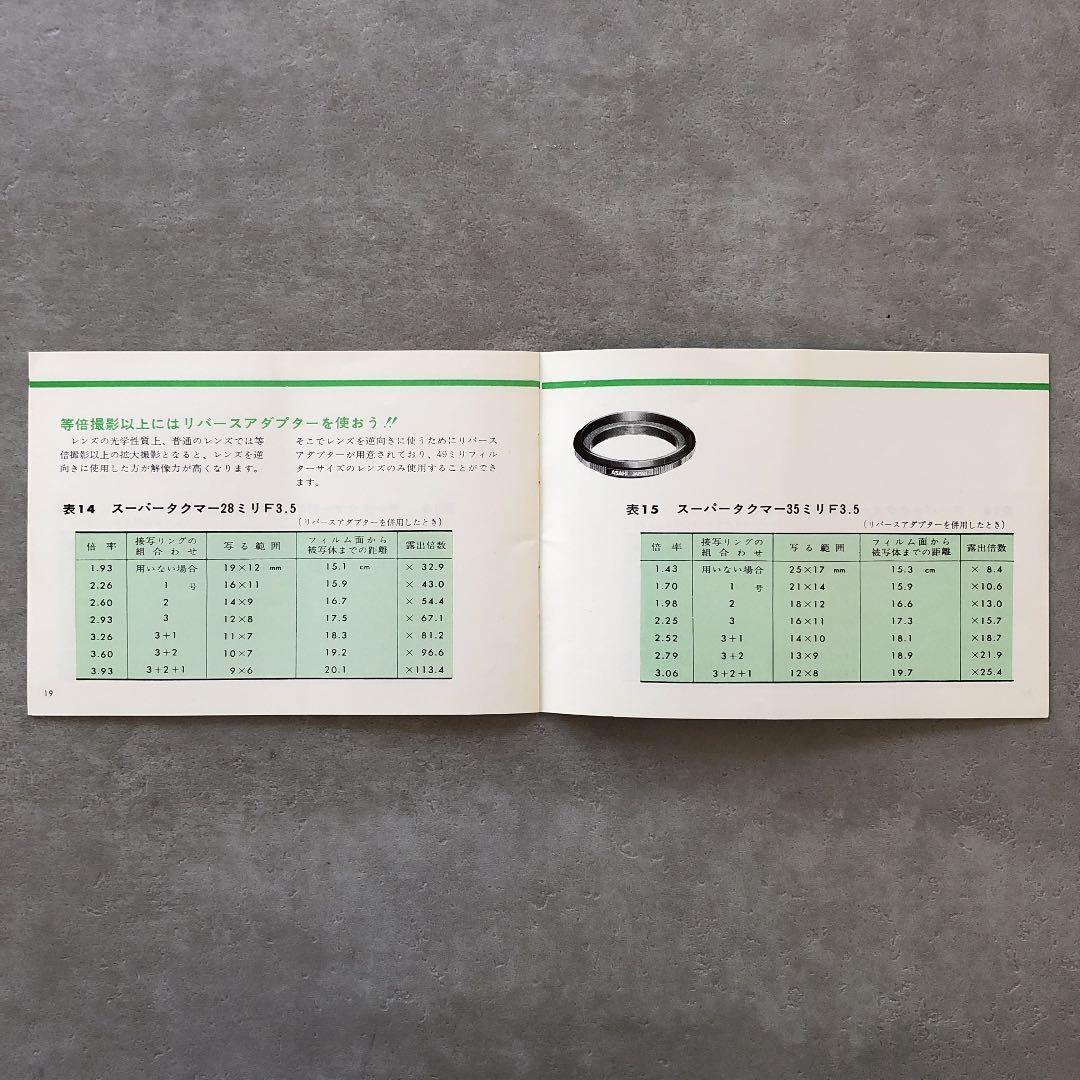 等倍撮影以上にはリバースアダプターを使おう!!
レンズの光学性質上、普通のレンズでは等
倍撮影以上の拡大撮影となると、レンズを逆
向きに使用した方が解像力が高くなります。
そこでレンズを逆向きに使うためにリバース
アダプターが用意されており、49ミリフィル
ターサイズのレンズのみ使用することができ
ます。
表14 スーパータクマー28ミリF3.5
(リバースアダプターを併用したとき)
倍率 接写リングの組合わせ 写る範囲 フィルム面から被写体までの距離 露出倍数
1.93 用いない場合 19×12 mm 15.1 cm × 32.9
2.26 1 号 16×11 15.9 × 43.0
2.60 2 14×9 16.7 × 54.4
2.93 3 12×8 17.5 × 67.1
3.26 3+1 11×7 18.3 × 81.2
3.60 3+2 10×7 19.2 × 96.6
3.93 3+2+1 9×6 20.1 ×113.4
19
ASAHI JAPAN
表15 スーパータクマー35ミリF3.5
(リバースアダプターを併用したとき)
倍率 接写リングの組合わせ 写る範囲 フィルム面から被写体までの距離 露出倍数
1.43 用いない場合 25×17 mm 15.3 cm × 8.4
1.70 1 号 21×14 15.9 ×10.6
1.98 2 18×12 16.6 ×13.0
2.25 3 16×11 17.3 ×15.7
2.52 3+1 14×10 18.1 ×18.7
2.79 3+2 13×9 18.9 ×21.9
3.06 3+2+1 12×8 19.7 ×25.4